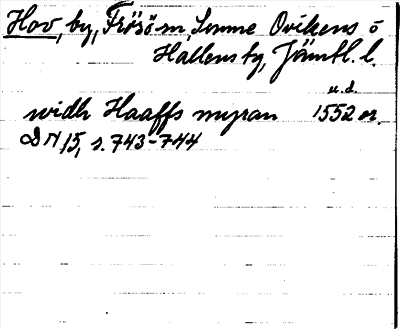 Hov, by, Frösö sn, Sunne Ovikens o
Hallens tg, Jämtl. l.
u.d.
widh Haaffs myran 1552 or.
DN 15, s. 743-744